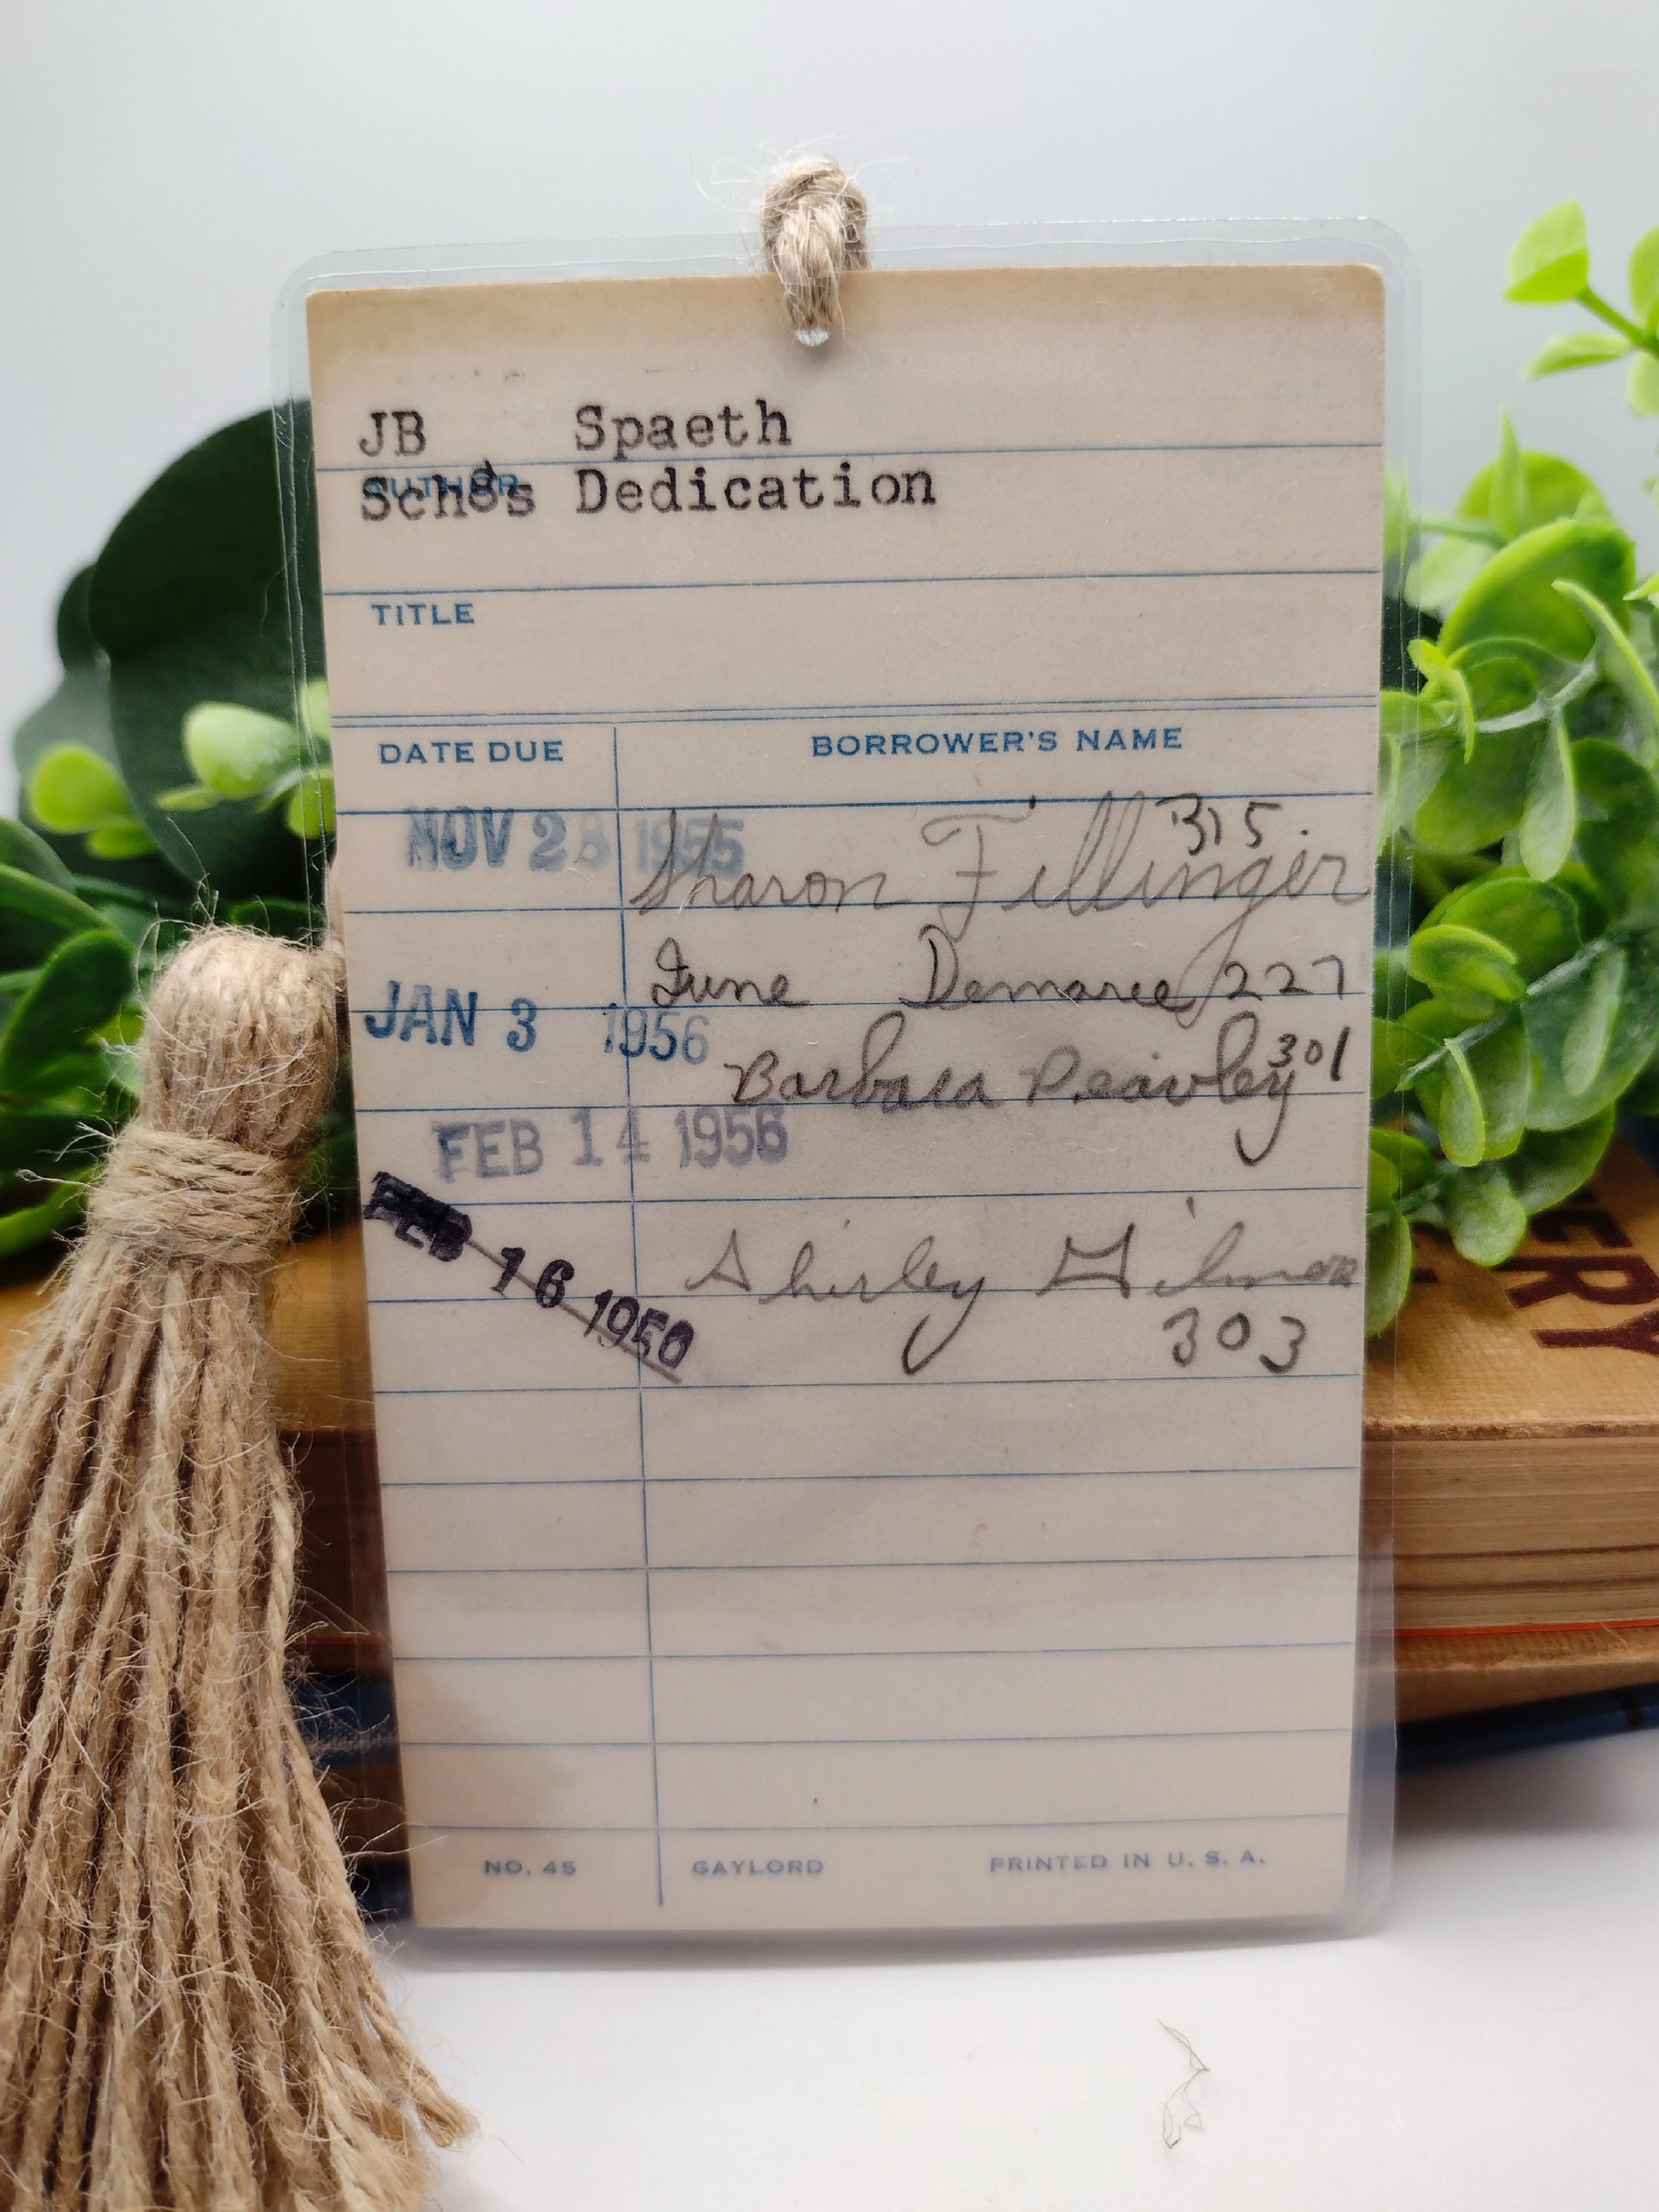 JB Spaeth
AUTHOR
Sch8s Dedication
TITLE
DATE DUE BORROWER'S NAME
NOV 28 1955 Sharon Fillinger 315.
June Demaree 227
JAN 3 1956
Barbara Peavley 301
FEB 14 1956
FEB 16 1950 Shirley Gilmore
303
NO. 45 GAYLORD PRINTED IN U. S. A.
ERY